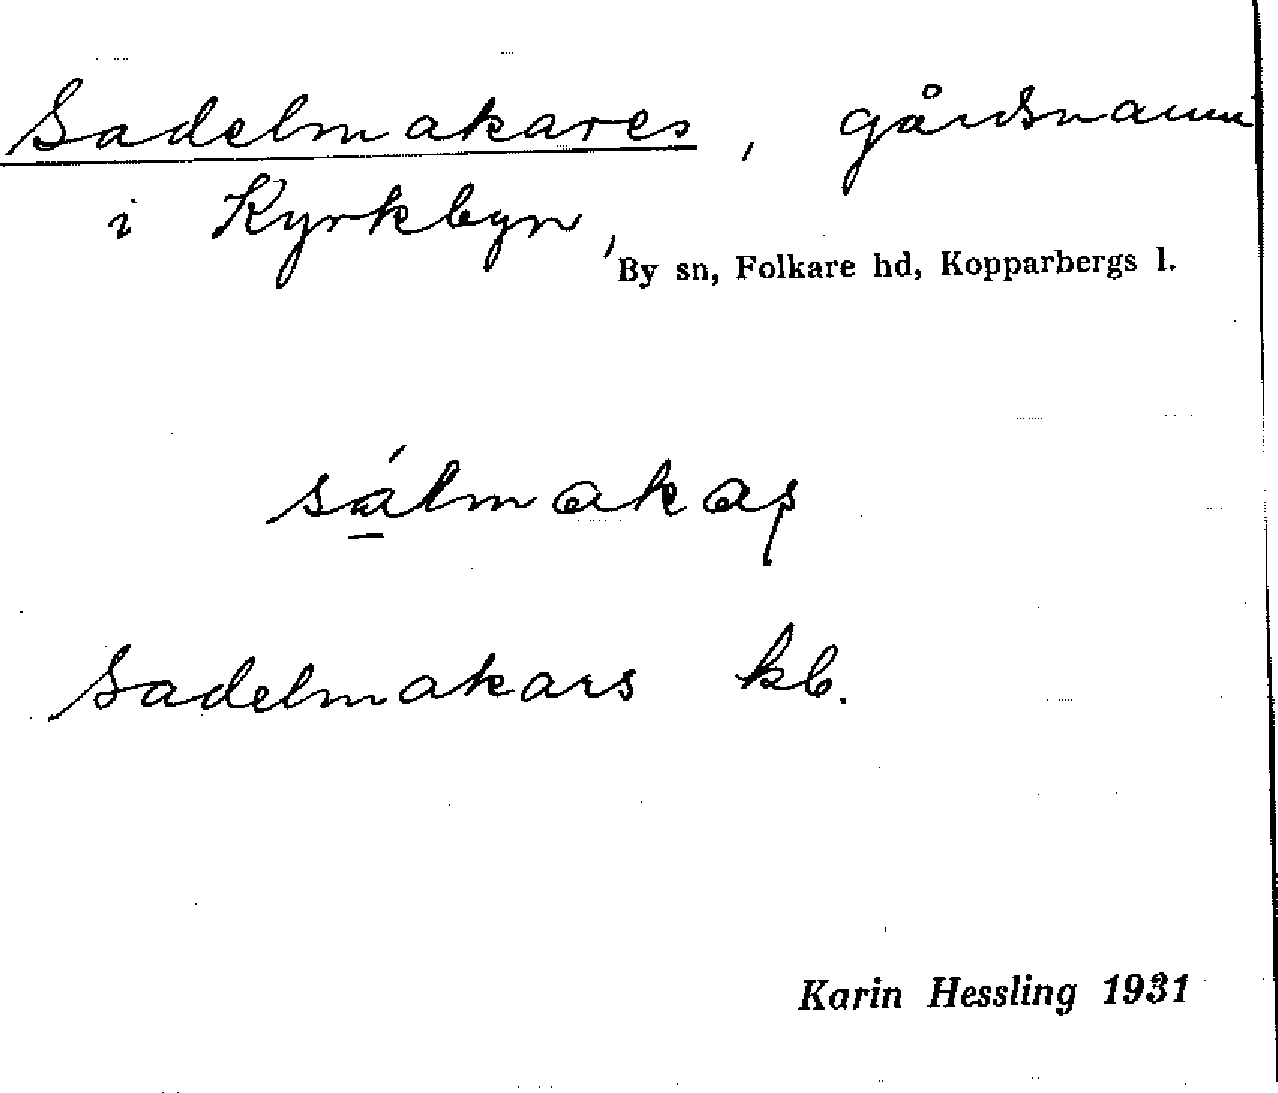 Sadelmakares, gårdsnamn
i Kyrkbyn,
By sn, Folkare hd, Kopparbergs l.
sálmakaʂ
Sadelmakars kb.
Karin Hessling 1931